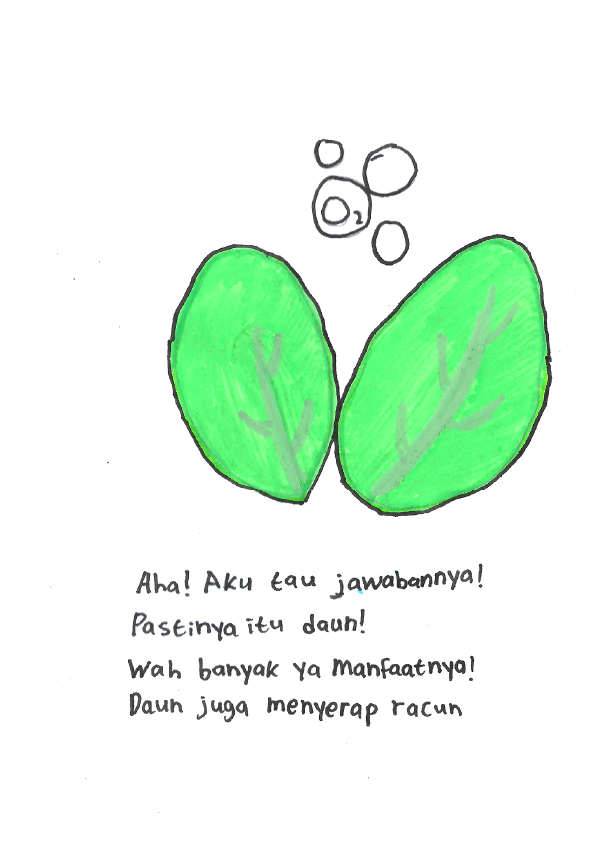 O2
Aha! Aku tau jawabannya!
Pastinya itu daun!
Wah banyak ya Manfaatnya!
Daun juga menyerap racun